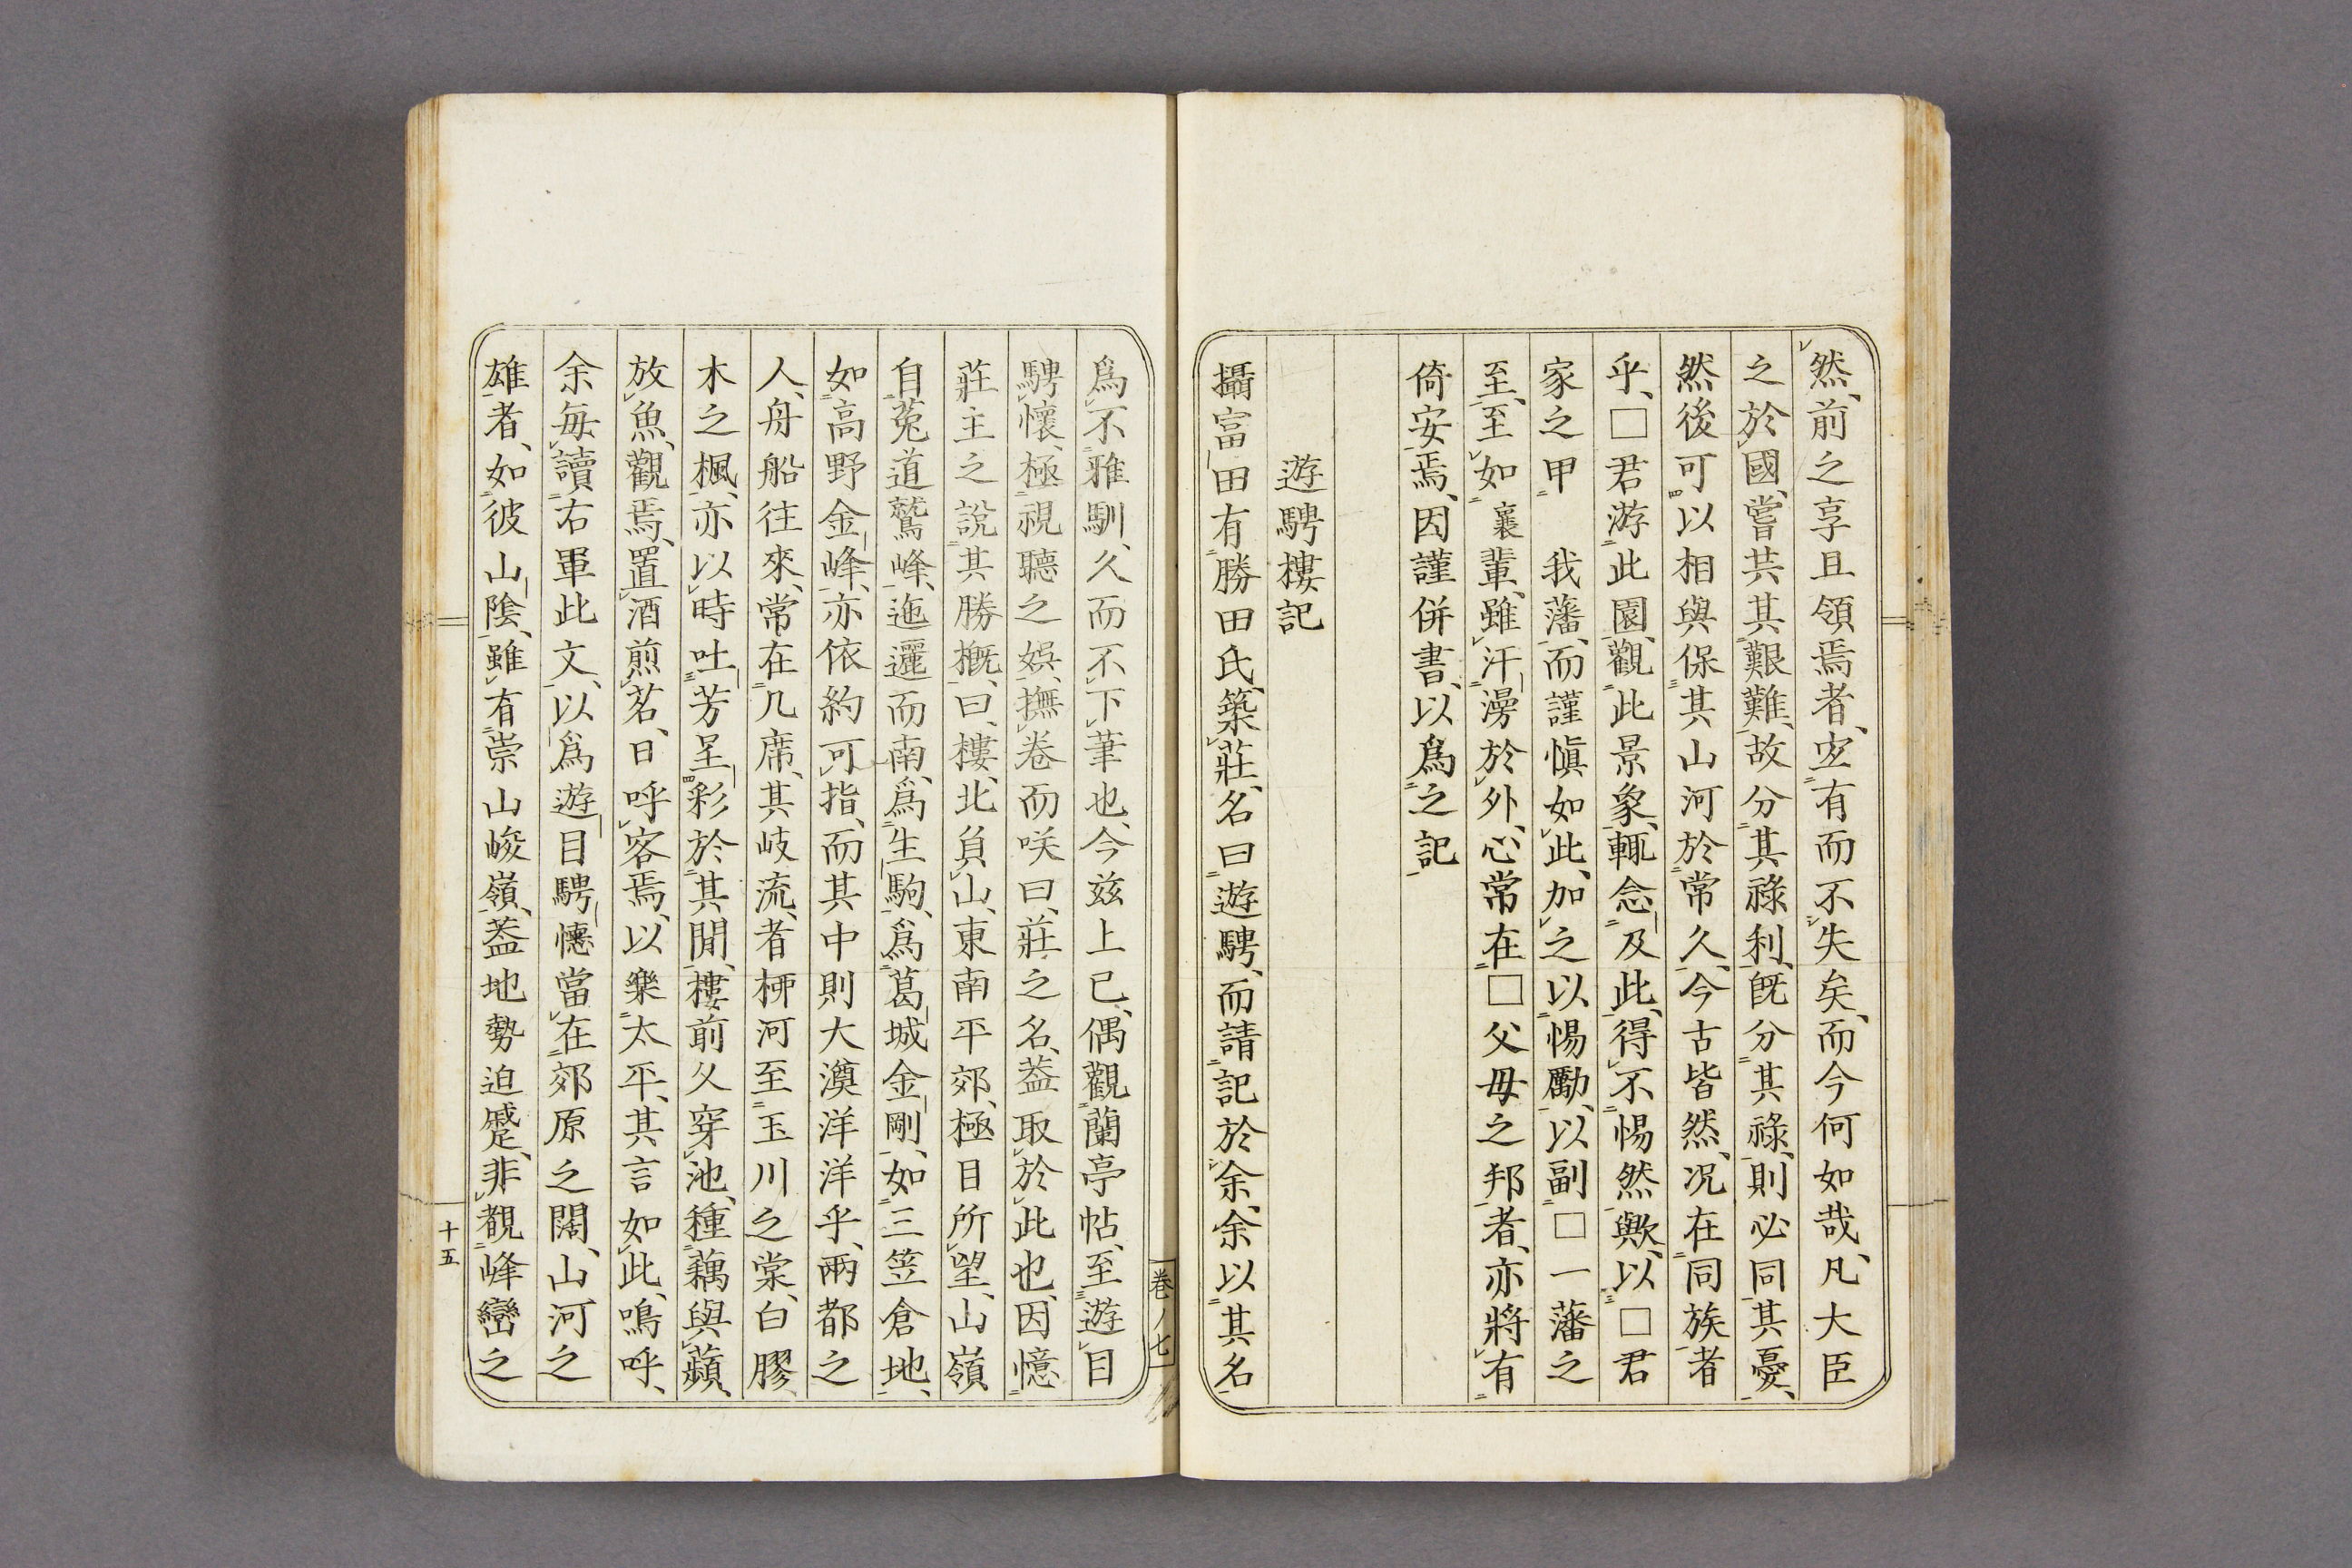 然、前之享且領焉者、宜有而不失矣、而今何如哉、凡大臣
之於國、嘗共其艱難、故分其祿利、既分其祿、則必同其憂、
然後可以相與保其山河於常久、今古皆然、况在同族者
乎、□君游此園、觀此景象、輒念及此、得不惕然歟、以□君
家之甲　我藩、而謹愼如此、加之以惕勵、以副□一藩之
至、至如襄輩、雖汗漫於外、心常在□父母之邦者、亦將有
倚安焉、因謹併書、以爲之記
遊騁樓記
攝富田有勝田氏、築莊、名曰遊騁、而請記於余、余以其名
爲不雅馴、久而不下筆也、今兹上巳、偶觀蘭亭帖、至遊目
騁懷、極視聽之娯、撫卷而咲曰、莊之名、葢取於此也、因憶
莊主之說其勝概、曰、樓、北負山、東南平郊、極目所望、山嶺
自菟道鷲峰、迤邐而南、爲生駒、爲葛城金剛、如三笠倉地、
如高野金峰、亦依約可指、而其中則大漠洋洋乎、兩都之
人、舟船往來、常在几席、其岐流者栁河至玉川之棠、白膠
木之楓、亦以時吐芳呈彩於其間、樓前久穿池、種藕與蘋、
放魚、觀焉、置酒煎茗、日呼客焉、以樂太平、其言如此、嗚呼、
余每讀右軍此文、以爲遊目騁懷當在郊原之闊、山河之
雄者、如彼山陰、雖有崇山峻嶺、葢地勢迫蹙、非覩峰巒之
卷ノ七
十五